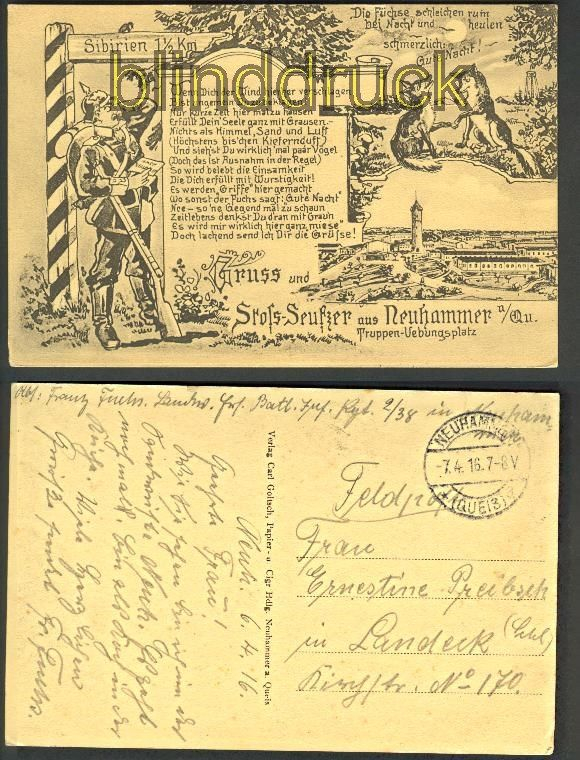 Sibirien 1½ Km
Die Füchse schleichen rum
bei Nacht und heulen
schmerzlich:
Gute Nacht!
blinddruck
Wenn Dich der Wind hierher verschlagen
Nur kurze Zeit hier mal zu hausen
Erfüllt Dein' Seele ganz mit Grausen.
Nichts als Himmel, Sand und Luft
(Höchstens bis'chen Kiefernduft)
Und siehst Du wirklich 'mal paar Vögel
(Doch das ist Ausnahm in der Regel)
So wird belebt die Einsamkeit
Die Dich erfüllt mit Wurstigkeit!
Es werden „Griffe" hier gemacht
Wo sonst der Fuchs sagt: „Gute Nacht"
Nee – so 'ne Gegend mal zu schaun
Zeitlebens denkst Du dran mit Graun
Es wird mir wirklich hier ganz miese
Doch lachend send ich Dir die Grüße!
Gruss und
Stoss-Seufzer aus Neuhammer a/Qu.
Truppen-Uebungsplatz
Abs: Franz Fuchs. Landw. Ers. Batl. Inf. Rgt. 2/38 in Neuham
NEUHAMMER
-7.4.16.7-8V
(QUEIS)
Feldpost
Frau
Ernestine Preibsch
in Landeck
Kirchstr. No 170.
Verlag Carl Goltsch, Papier- u Cigr Hdlg. Neuhammer a. Queis
Neuh. 6.4.16.
Frau!
Wie Sie sehen bin ich in der
Neuh.
noch mal.
Grüße
Fr. Fuchs.